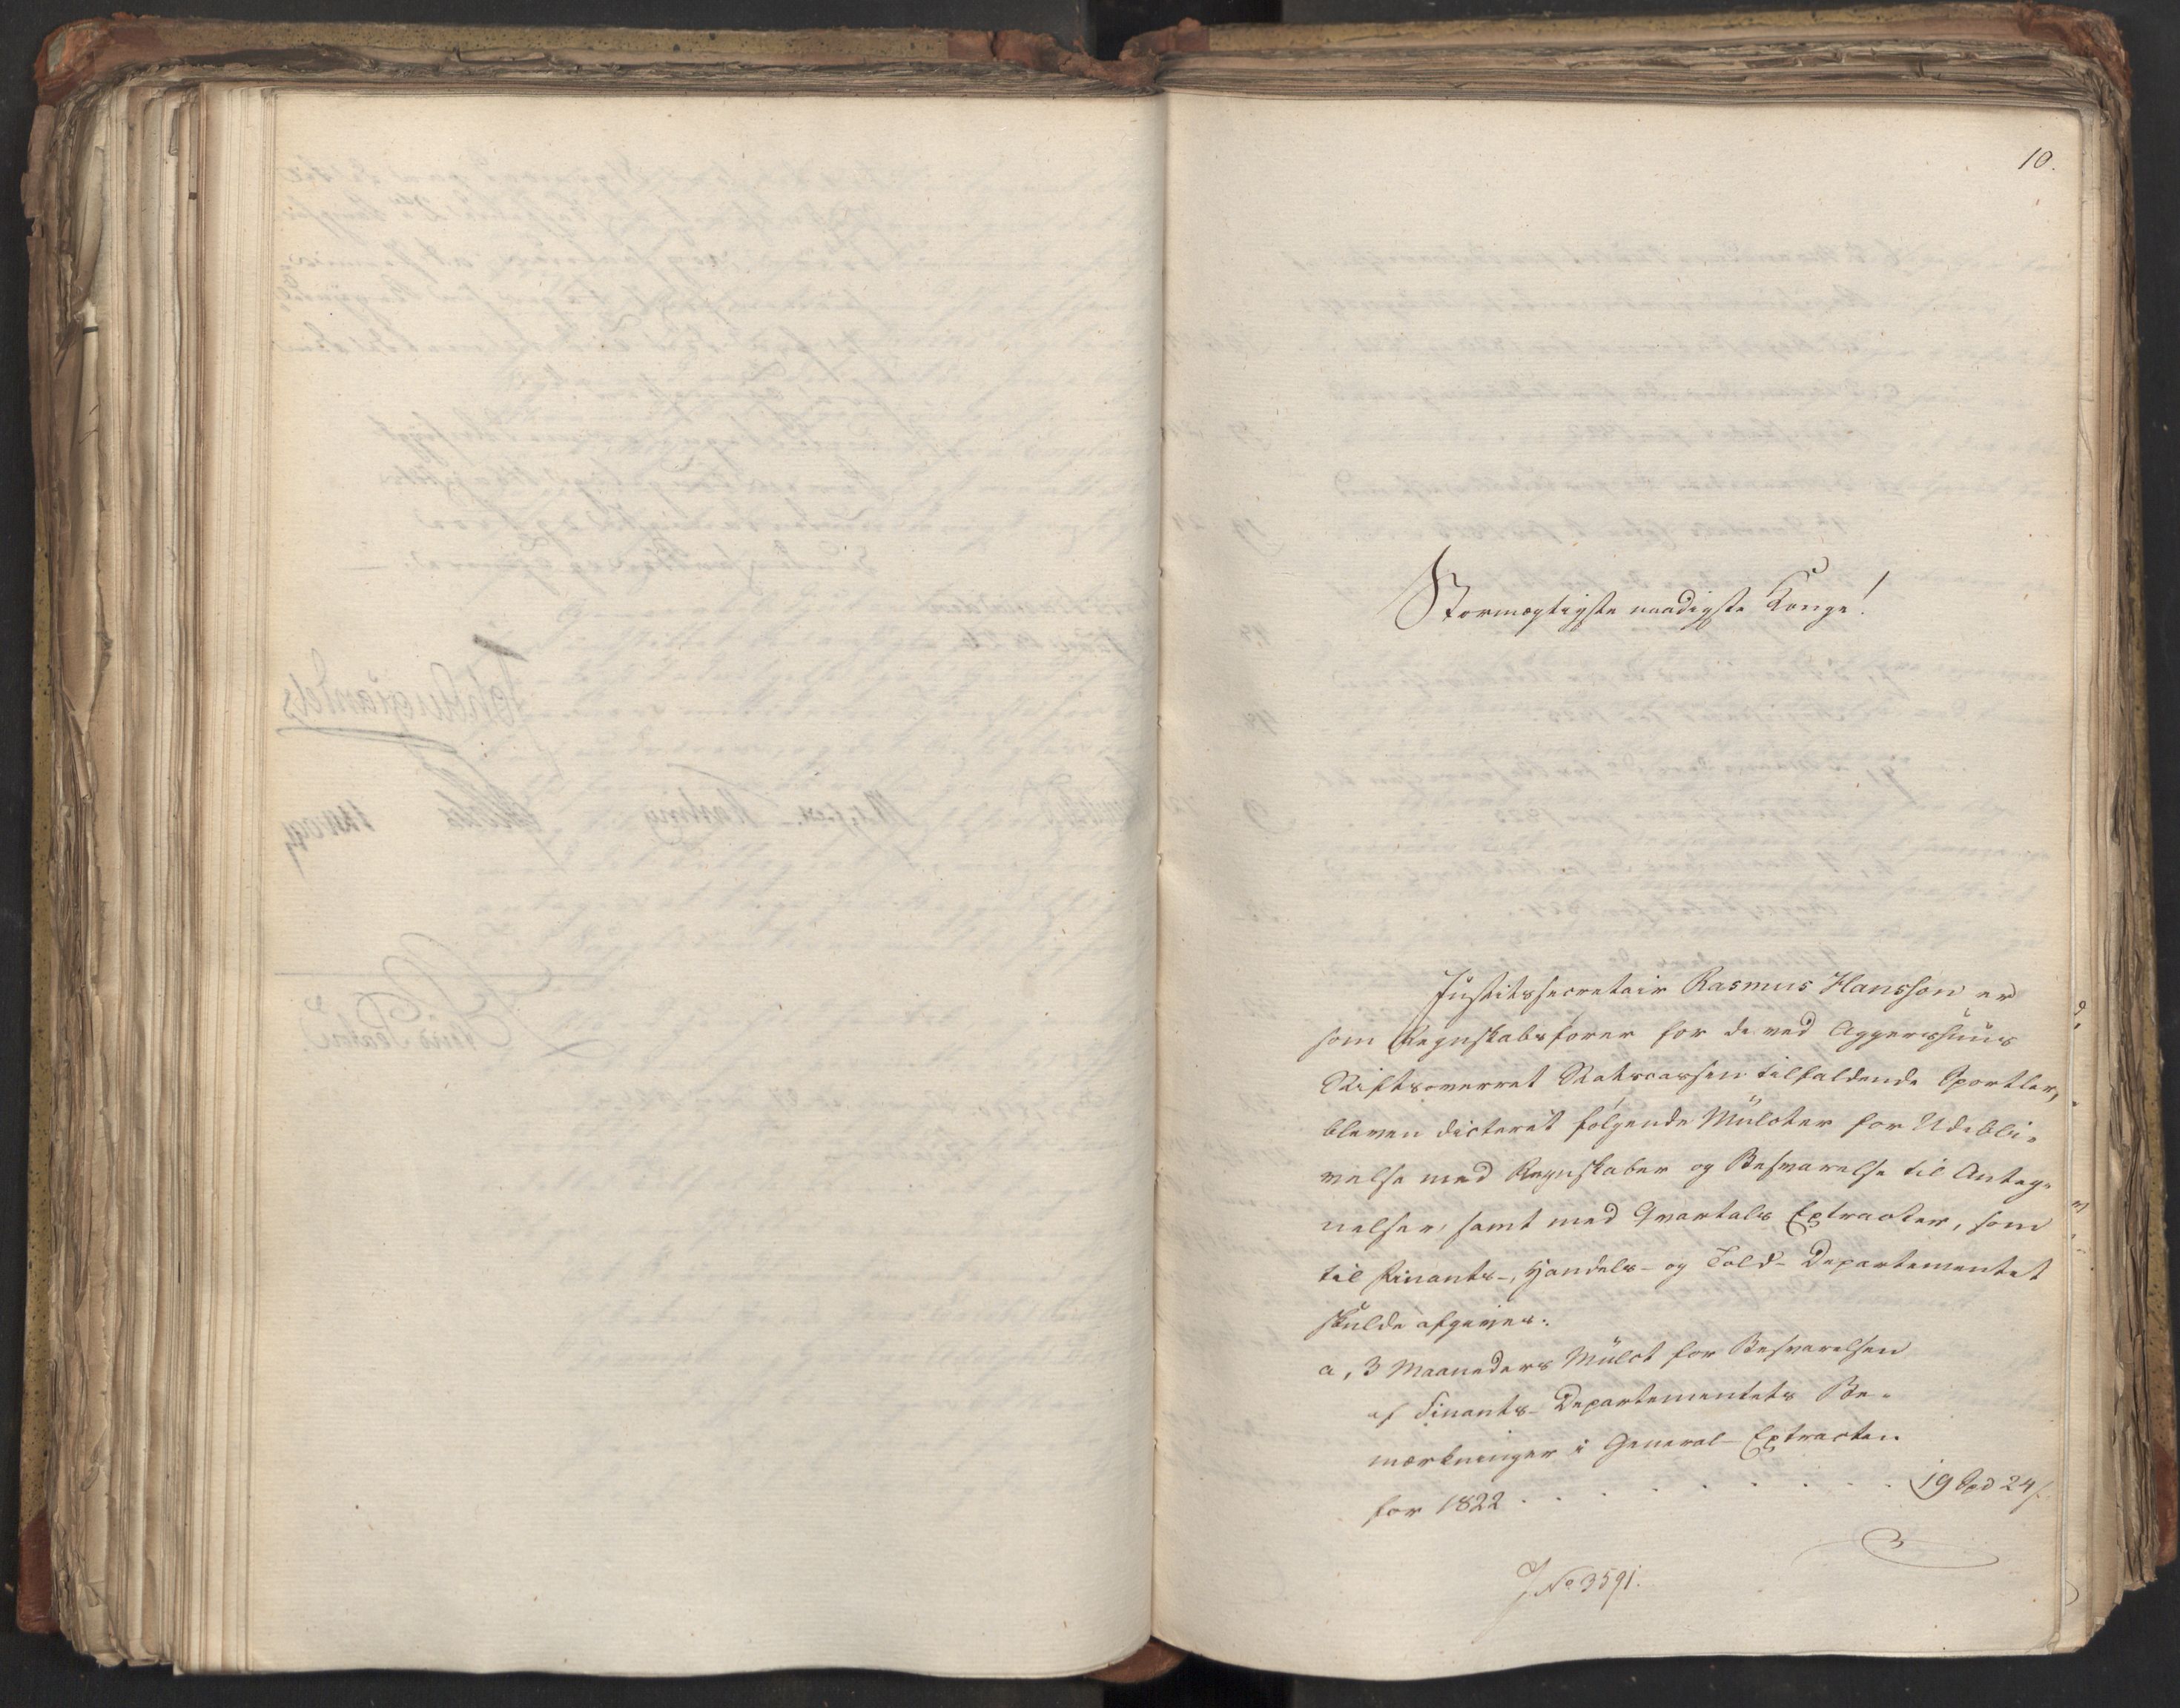 10.
Stormægtigste naadigste Konge!
Justitssecretair Rasmus Hansson er
som Regnskabsfører for de ved Aggershuus
Stiftsoverret Statscassen tilfaldende Sportler,
bleven dicteret følgende Mulcter for Udebli-
velse med Regnskaber og Besvarelse til Anteg-
nelser, samt med Qvartals Extracter, som
til Finants-, Handels- og Told-Departementet
skulde afgives:
a, 3 Maaneders Mulct for Besvarelsen
af Finants-Departementets Be-
mærkninger i General-Extracten
for 1822 . . . . . . . . . 19 Spd 24 s
J No 3591.